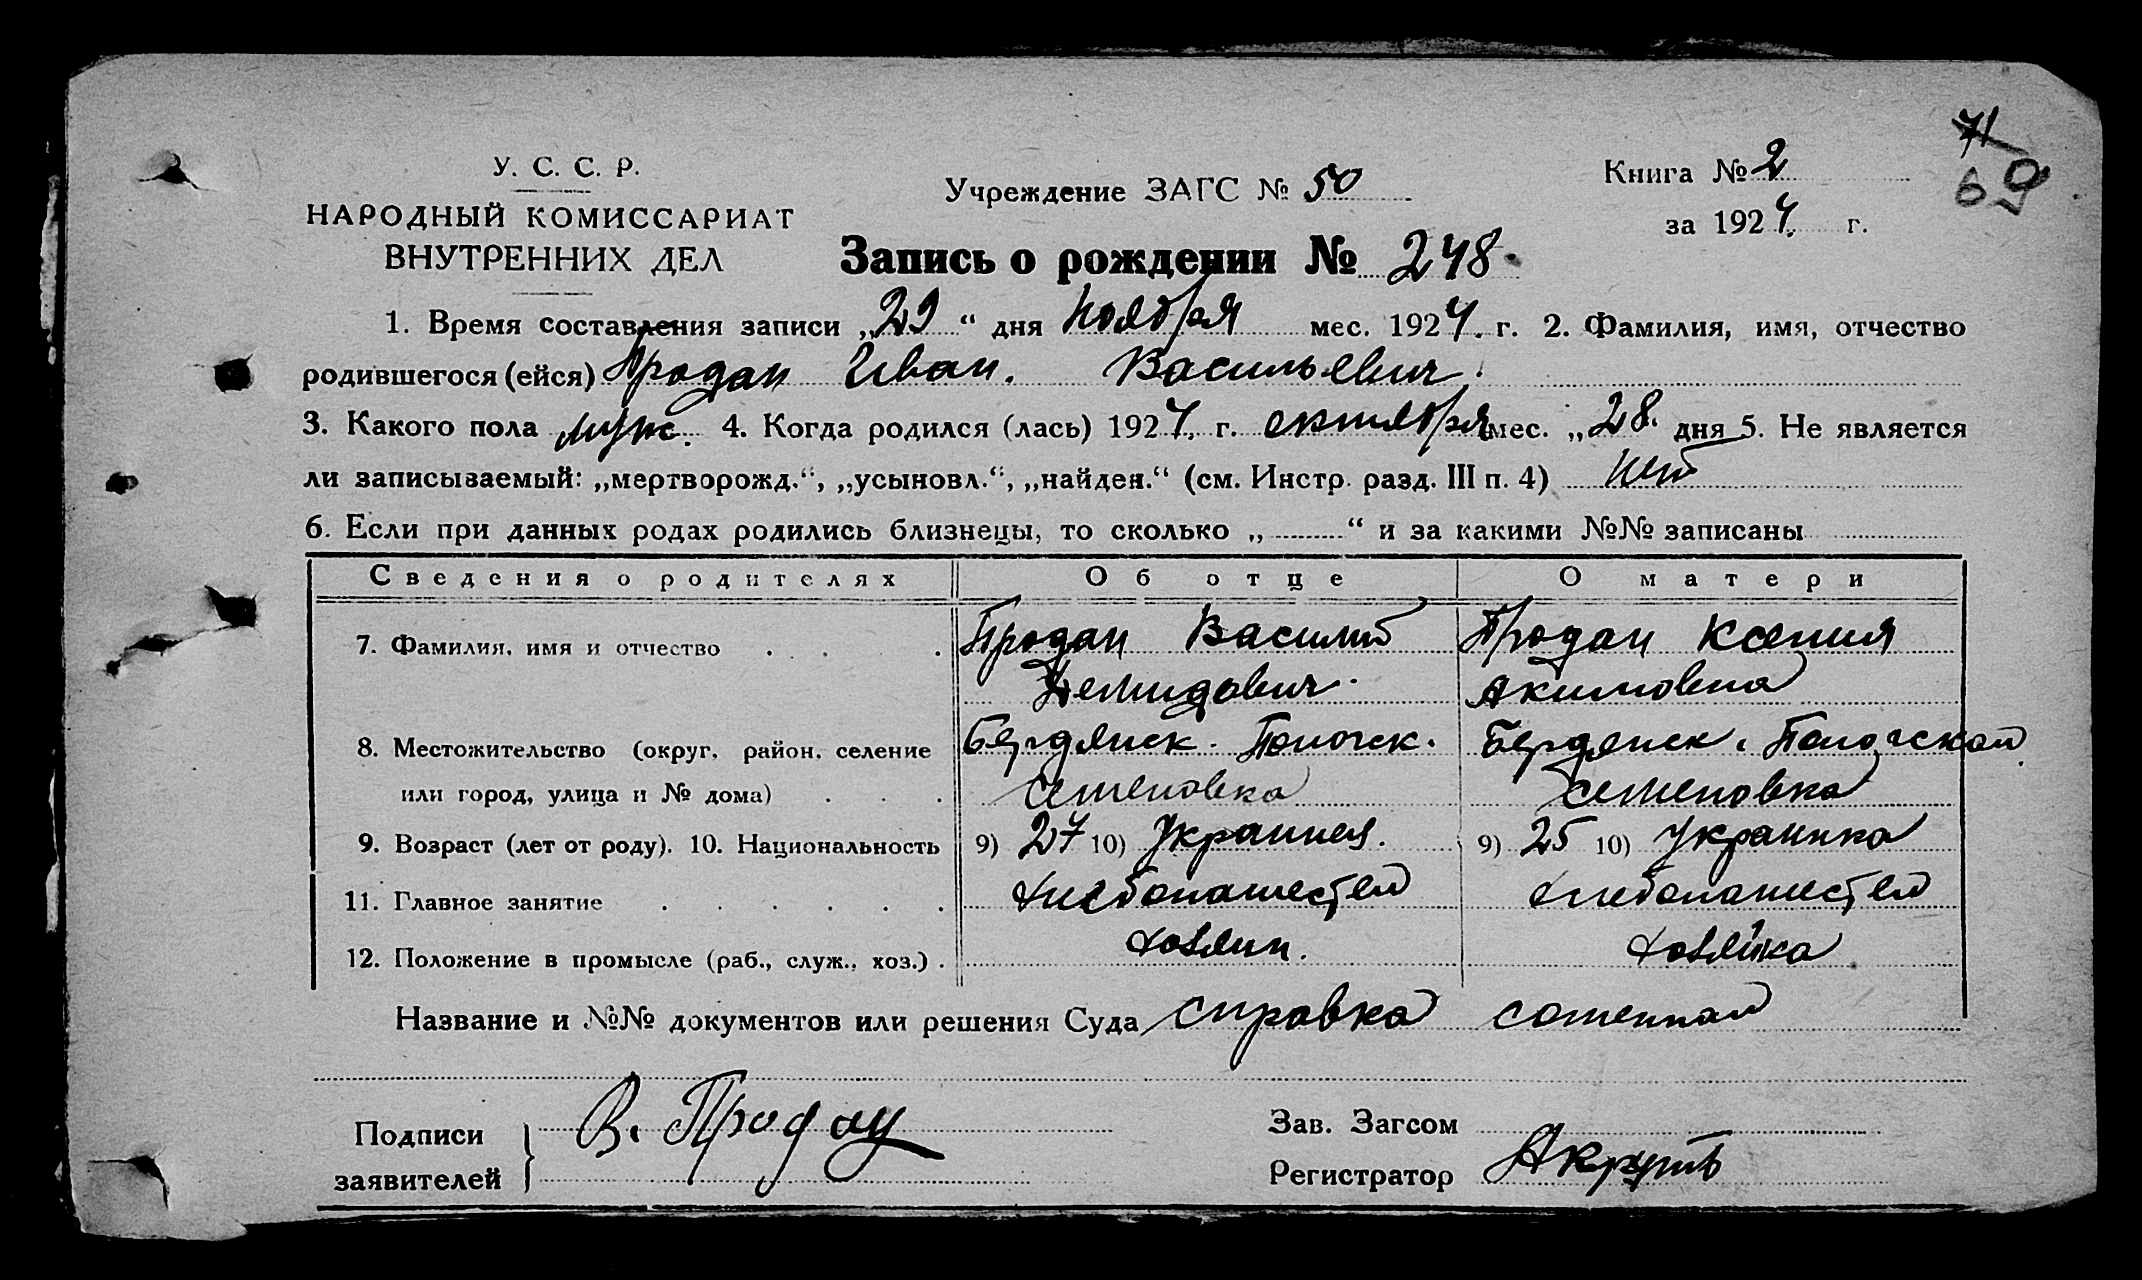 71
69
У. С. С. Р.
НАРОДНЫЙ КОМИССАРИАТ
ВНУТРЕННИХ ДЕЛ
Учреждение ЗАГС № 50
Книга № 2
за 1924 г.
Запись о рождении № 248.
1. Время составления записи „29“ дня Ноября мес. 1924. г. 2. Фамилия, имя, отчество
родившегося (ейся) Продан Иван. Васильевич.
3. Какого пола муж. 4. Когда родился (лась) 1924. г. октября мес. „28. дня 5. Не является
ли записываемый: „мертворожд.“, „усыновл.“, „найден.“ (см. Инстр. разд. III п. 4) нет
6. Если при данных родах родились близнецы, то сколько „ “ и за какими №№ записаны
Сведения о родителях Об отце О матери
7. Фамилия, имя и отчество Продан Василий Продан Ксения
Демидович. Акимовна
8. Местожительство (округ, район, селение Бердянск. Пологск. Бердянск. Пологской
или город, улица и № дома) Семеновка Семеновка
9. Возраст (лет от роду). 10. Национальность 9) 27 10) Украинец. 9) 25 10) Украинка
11. Главное занятие
12. Положение в промысле (раб., служ., хоз.) Хозяин. Хозяйка
Название и №№ документов или решения Суда справка
Подписи В. Продан Зав. Загсом
заявителей Регистратор